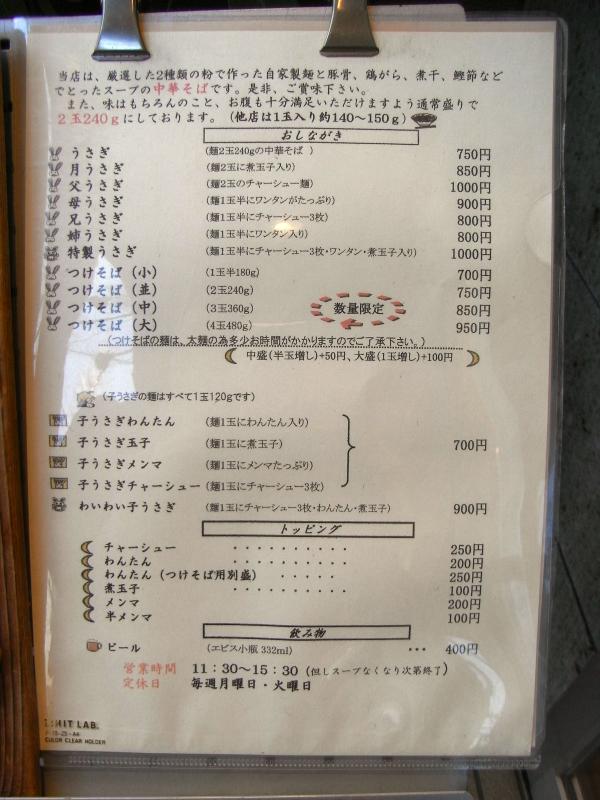 当店は、厳選した2種類の粉で作った自家製麺と豚骨、鶏がら、煮干、鰹節など
でとったスープの中華そばです。是非、ご賞味下さい。
また、味はもちろんのこと、お腹も十分満足いただけますよう通常盛りで
2玉240gにしております。(他店は1玉入り約140~150g)
おしながき
うさぎ (麺2玉240gの中華そば ) 750円
月うさぎ (麺2玉に煮玉子入り) 850円
父うさぎ (麺2玉のチャーシュー麺) 1000円
母うさぎ (麺1玉半にワンタンがたっぷり) 900円
兄うさぎ (麺1玉半にチャーシュー3枚) 800円
姉うさぎ (麺1玉半にワンタン入り) 800円
特製うさぎ (麺1玉半にチャーシュー3枚・ワンタン・煮玉子入り) 1000円
つけそば(小) (1玉半180g) 700円
つけそば(並) (2玉240g) 750円
つけそば(中) (3玉360g) 数量限定 850円
つけそば(大) (4玉480g) 950円
(つけそばの麺は、太麺の為多少お時間がかかりますのでご了承下さい。)
中盛(半玉増し)+50円、大盛(1玉増し)+100円
(子うさぎの麺はすべて1玉120gです)
子うさぎわんたん (麺1玉にわんたん入り)
子うさぎ玉子 (麺1玉に煮玉子) 700円
子うさぎメンマ (麺1玉にメンマたっぷり)
子うさぎチャーシュー (麺1玉にチャーシュー3枚)
わいわい子うさぎ (麺1玉にチャーシュー3枚・わんたん・煮玉子) 900円
トッピング
チャーシュー ・・・・・・・・・・ 250円
わんたん ・・・・・・・・・・ 200円
わんたん(つけそば用別盛) ・・・・・ 250円
煮玉子 ・・・・・・・・・・ 100円
メンマ 200円
半メンマ 100円
飲み物
ビール (エビス小瓶 332ml) ・・・ 400円
営業時間 11:30~15:30 (但しスープなくなり次第終了)
定休日 毎週月曜日・火曜日
HIT LAB.
COLOR CLEAR HOLDER